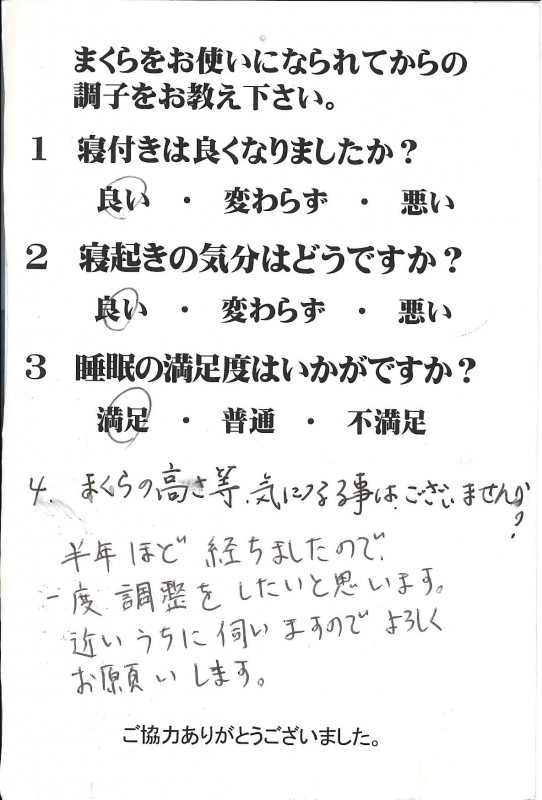 まくらをお使いになられてからの
調子をお教え下さい。
1 寝付きは良くなりましたか？
良い ・ 変わらず ・ 悪い
2 寝起きの気分はどうですか？
良い ・ 変わらず ・ 悪い
3 睡眠の満足度はいかがですか？
満足 ・ 普通 ・ 不満足
4. まくらの高さ等、気になる事は、ございませんか?
半年ほど経ちましたので、
一度調整をしたいと思います。
近いうちに伺いますのでよろしく
お願いします。
ご協力ありがとうございました。